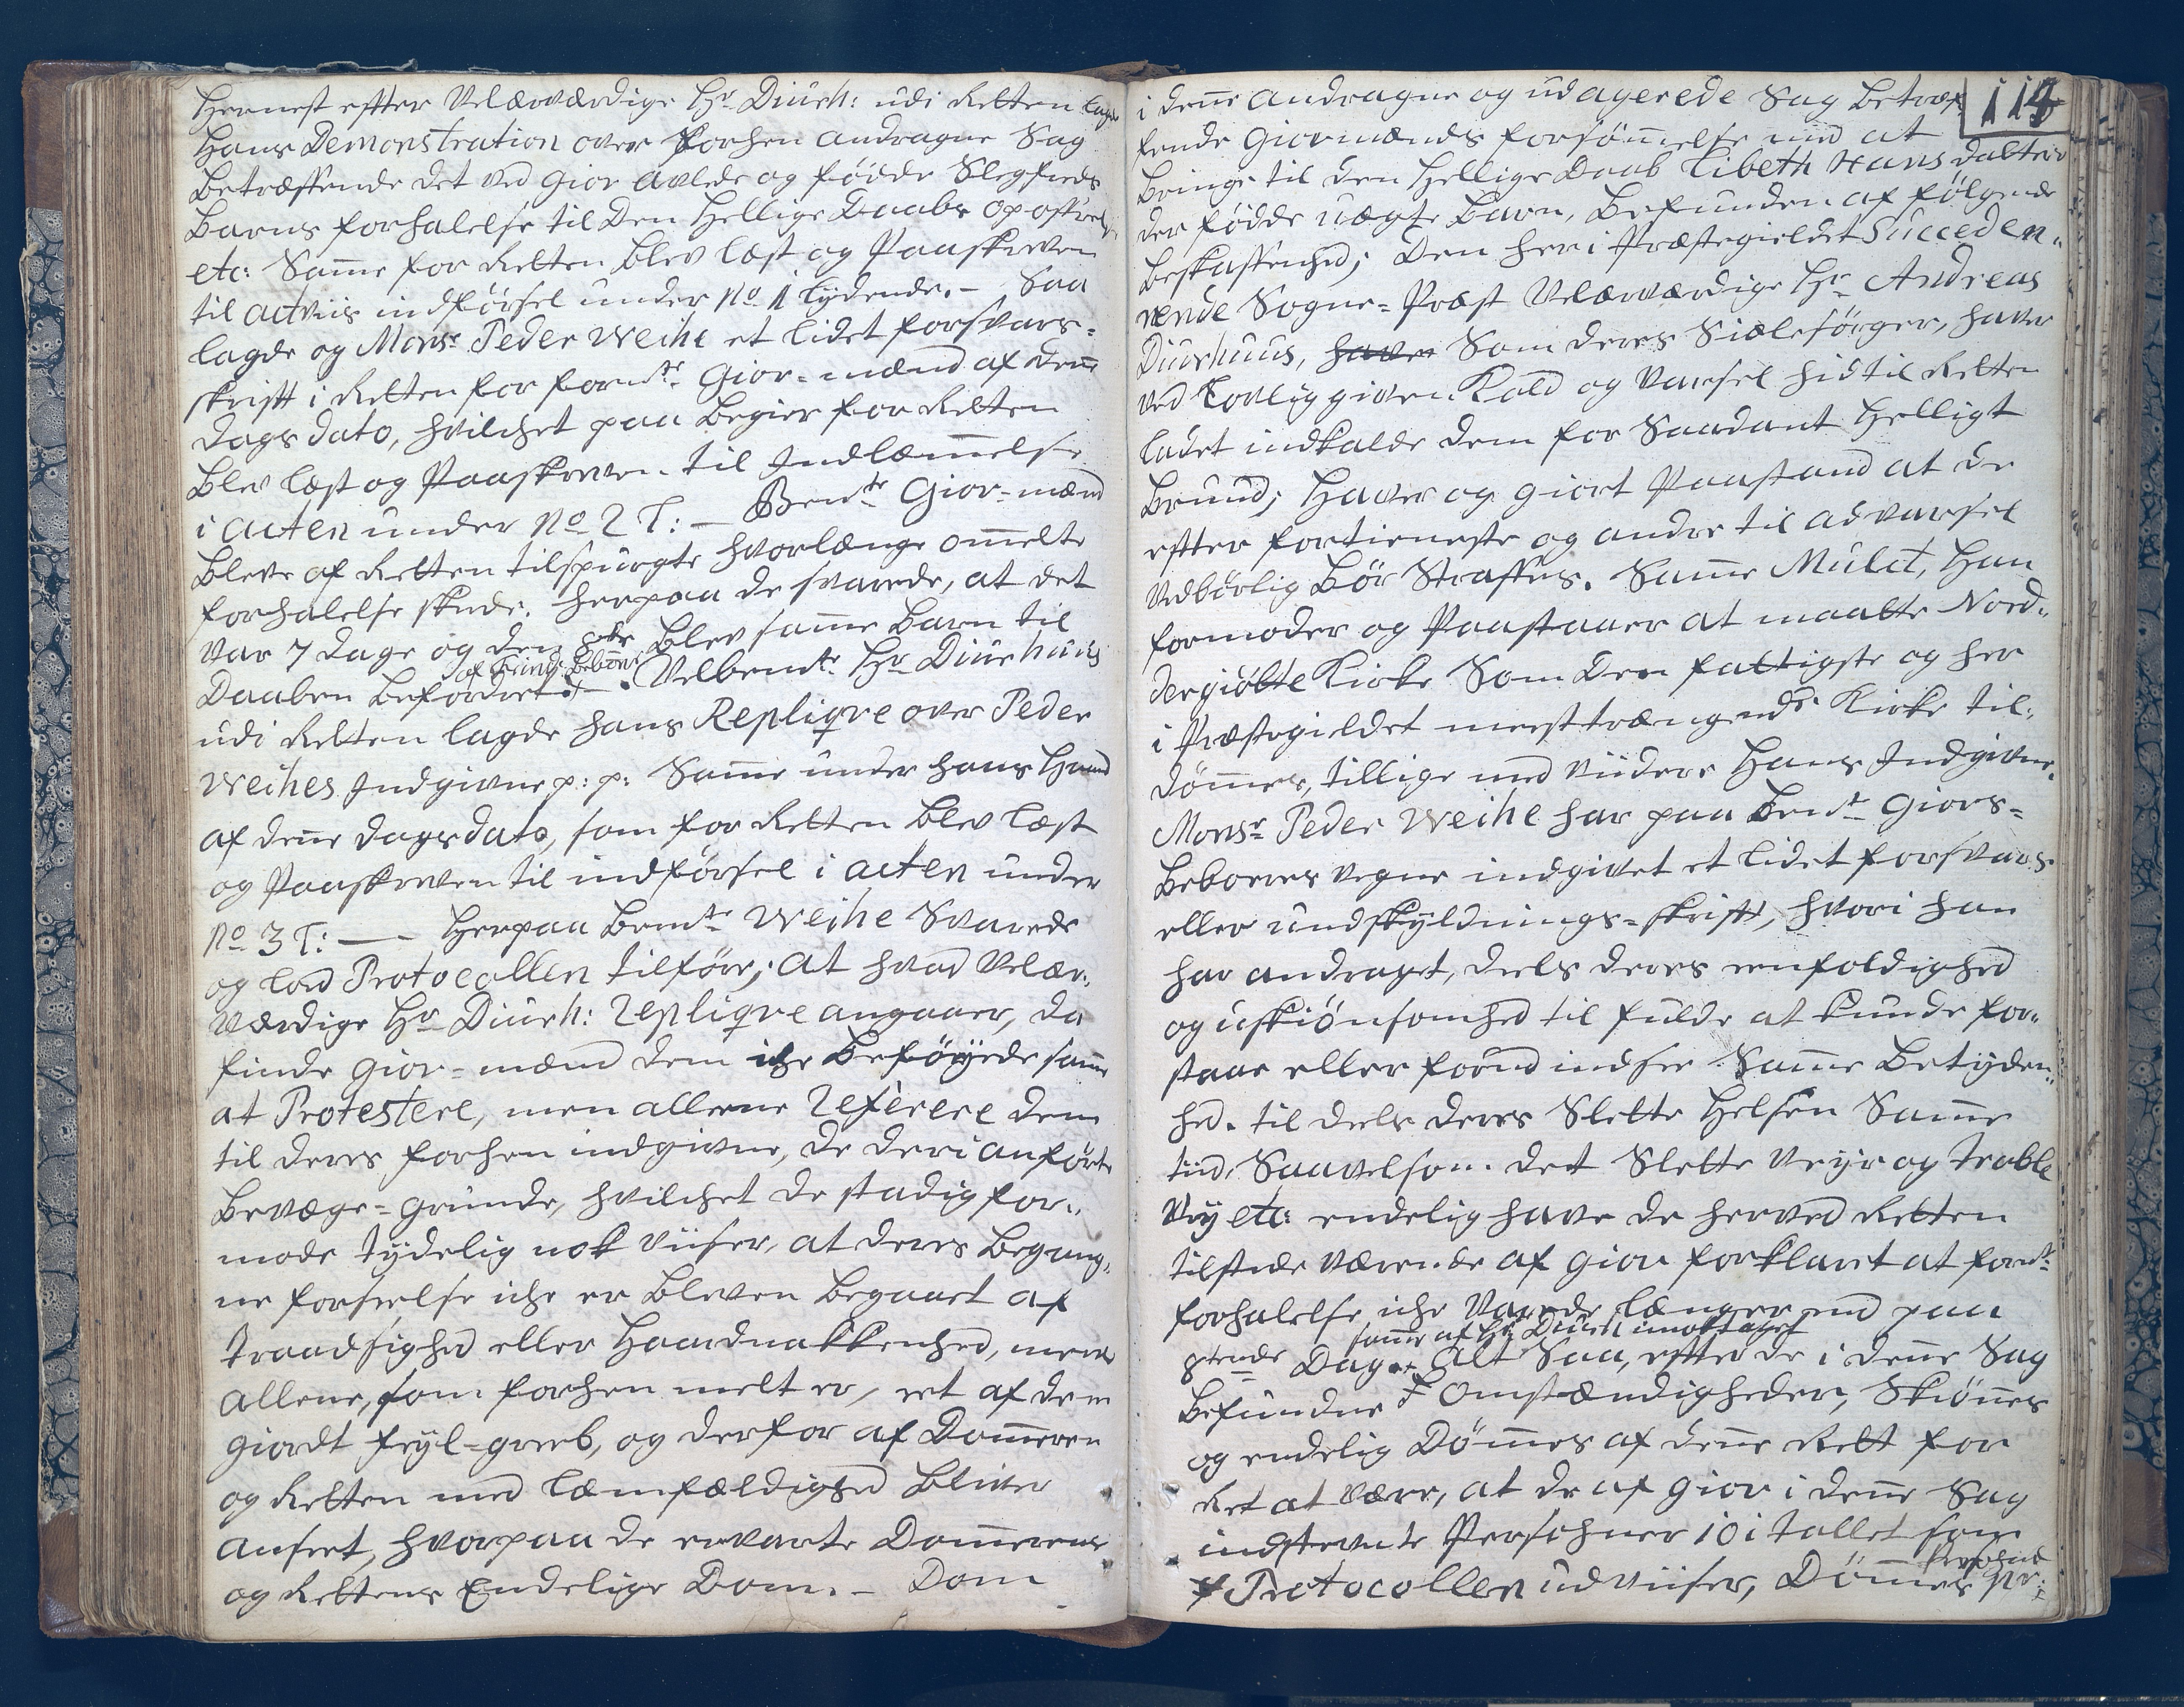 Hernest effter Velærværdige Hr Diurh: udi Retten lagde
Hans Demonstration over forhen andragne Sag
Betræffende det ved Giov avlede og fødde Slegfreds
Barns forhalelse til Den Hellige Daabs opoffrelse
etc: Samme for Retten blev læst og Paaskreven
til actviis indførsel under No 1 lydende. – Saa
lagde og Monsr Peder Weihe et lidet forsvars-
skrifft i Retten for formte Giov-mænd af denne
Dags dato, hvilchet paa Begier for Retten
blev læst og Paaskreven til Indlæmmelse
i acten under No 2 L: – Bemte Giov-mænd
bleve af Retten tilspurgte hvorlænge ommelte
forhalelse skede. herpaa de svarede, at det
var 7 dage og den 8de blev samme barn til
af
Daaben befordret – Velbemte Hr Diurhuus
udi Retten lagde hans Repliqve over Peder
Weihes Indgivne p: p: Samme under hans Haand
af denne dags dato, som for Retten blev læst
og Paaskreven til indførsel i acten under
No 3 L: — Herpaa bemte Weihe Svarede
og lod Protocollen tilføre; at hvad Velær-
værdige Hr Diurh: Repliqve angaaer, da
finde Giov-mænd dem iche beføyede samme
at Protestere, men alleene Referere dem
til deres forhen indgivne, de deri anførte
bevæge-grunde, hvilchet de stadig for-
mode tydelig nok viiser, at deres begang-
ne forseelse iche er bleven begaaet af
traadsighed eller Haardnakkenhed, mens
allene, som forhen melt er, et af dem
giordt feyl-greeb, og derfor af Dommeren
og Retten med Læmfældighed bliver
anseet, hvorpaa de ervarte Dommerens
og Rettens Endelige Dom. – Dom
114
i denne andragne og udagerede Sag betræf-
fende Giovmænds forsømmelse med at
bringe til den hellige Daab Libeth Hans datters
der fødde uægte barn, befunden af følgende
beskaffenhed; Den her i Præstegieldet Succeden-
rende Sogne-Præst Velærværdige Hr Andreas
Diurhuus, haver Som deres Siælesørger, haver
ved Lovlig given Kald og Varsel hid til Retten
ladet indkalde dem for Saadant Helligt
brund; Haver og giort Paastand at de
effter fortieneste og andre til advarsel
vedbørlig bør Straffes. Samme Mulct, Han
formoder og Paastaaer at maatte Nord-
dergiøtte Kirke Som den fattigste og her
i Præstegieldet meest trængende Kirke til-
dømmes, tillige med viidere Hans Indgivne.
Monsr Peder Weihe har paa bemte Giovs-
beboeres vegne indgivet et lidet forsvars
eller undskyldnings-skrifft, hvori han
har andraget, deels deres eenfoldighed
og uskiønsomhed til fulde at kunde for-
staae eller forud indsee Samme betyden-
hed. til deels deres Slette Helsen Samme
tiid, Saavelsom det Slette Veyr og trable
Vey etc: endelig have de herved Retten
tilstede værende af Giov forklaret at formte
forhalelse iche varede længer end paa
samme af Hr Diurh imodtaget
8tende Dag. Alt Saa, effter de i denne Sag
befundne ╪ Omstændigheder, Skiønnes
og endelig Dømmes af denne Rett for
Ret at være, at de af Giov i denne Sag
indstevnte Persohner 10 i tallet som
Persohne
Protocollen udviiser, Dømmes pr: